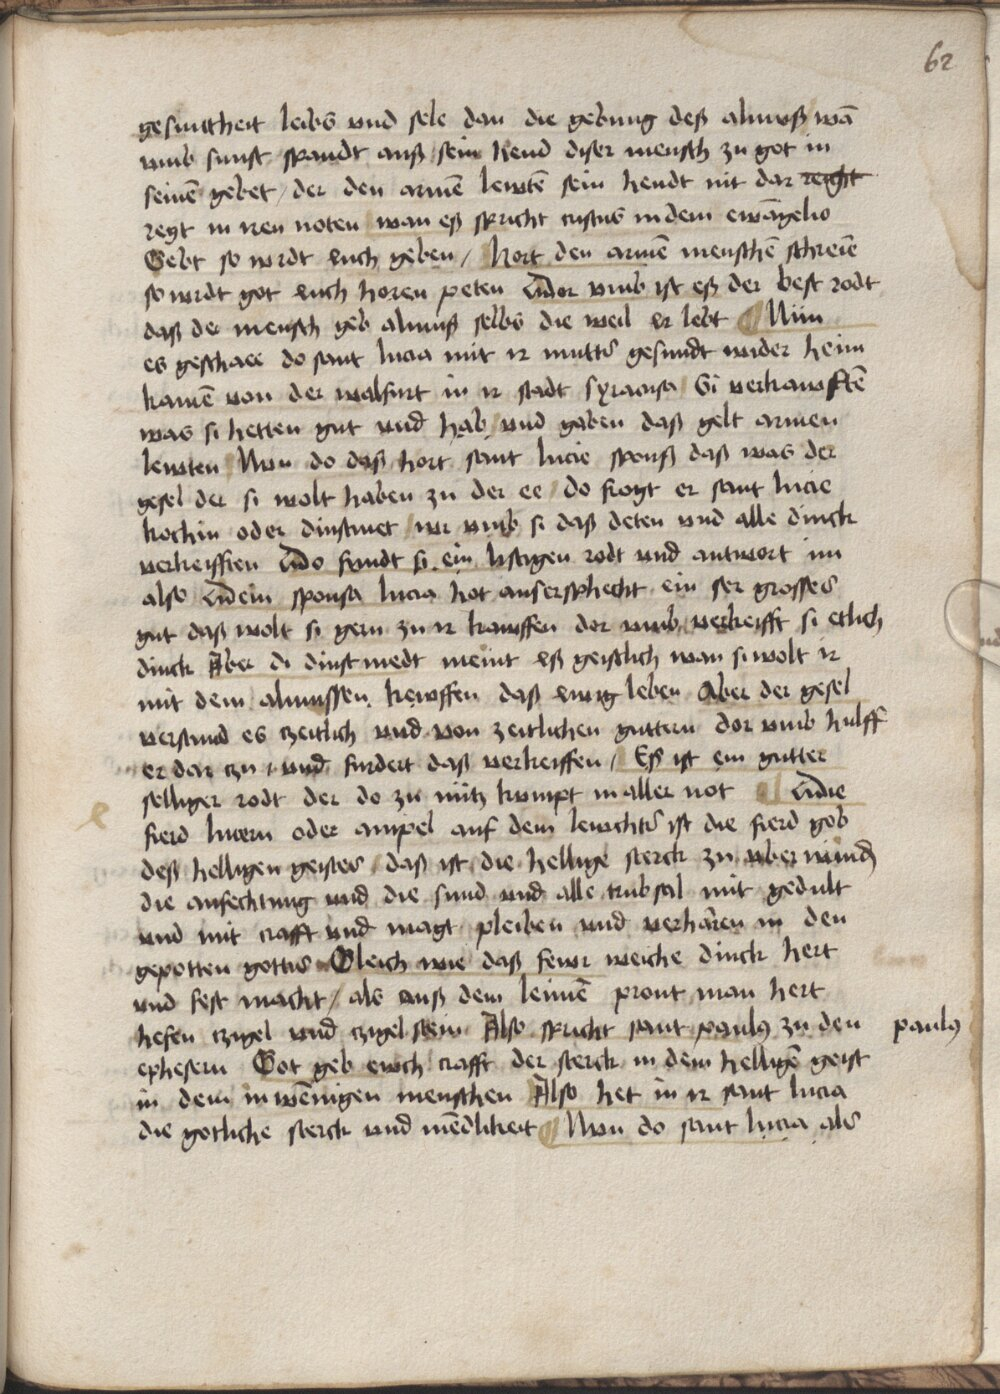 62
gesuntheit leibs vnd sele dan die gebung deß almuß wā
vmb sunst spandt auß sein hend diser mensch zu got in
seinē gebet / der den armē lewtē sein hendt nit dar reicht
regt in iren noten wan eß spricht cristus in dem ewāgelio
Gebt so wirdt euch geben / hort den armē menschē schreiē
so wirdt got euch horen peten Dor vmb ist eß der best rodt
daß der mensch geb almuß selbs die weil er lebt Nun
es geschach do sant lucia mit ir mutter gesundt wider heim
kamē von der walfart in ir stadt syracusa Si verkawfftē
was si hetten gut vnd hab vnd gaben daß gelt armen
lewten Nun do daß hort sant lucie sponß daß was der
gesel der si wolt haben zu der ee / do frogt er sant lucie
kochin oder dinstmet wor vmb si daß deten vnd alle dinck
verkeiffen Do fandt si ein listigen rodt vnd antwort im
also Dein sponsa lucia hot außersphecht ein ser grosses
gut daß wolt si gern zu ir kawffen dor vmb verkeifft si etlich
dinck Aber di dinstmedt meint eß geistlich wan si wolt ir
mit dem almussen kewffen daß ewig leben Aber der gesel
verstund es czeitlich vnd von zeitlichen guttern dor vmb hulff
er dar czu vnd furdert daß verkeiffen / Eß ist ein gutter
selliger rodt der do zu nutz kumpt in aller not Die
fierd lucern oder ampel auf dem lewchter ist die fierd gob
deß helligen geistes / daß ist die hellige sterck zu vber winden
die anfechtung vnd die sund vnd alle trubsal mit gedult
vnd mit crafft vnd magt pleiben vnd verharen in den
gepotten gottis Gleich wie daß fewr weiche dinck hert
vnd fest macht / als auß dem leimē prent man hert
hefen czigel vnd czigel stein Also spricht sant paulus zu den paulus
ephesern Got geb ewch crafft der sterck in dem helligē geist
in dem inwēnigen menschen Also het in ir sant lucia
die gotliche sterck vnd mēdlikeit Nun do sant lucia als